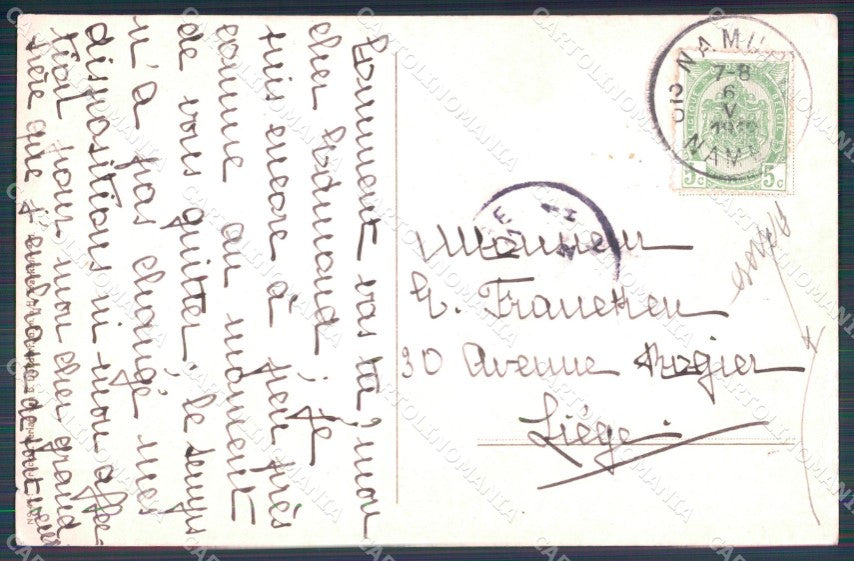 Comment vas tu, mon
cher Edmond; je
suis encore à peu près
comme au moment
de vous quitter; le temps
n'a pas changé mes
dispositions ni mon affec-
tion pour mon cher grand
frère que j'embrasse de tout
NAMUR
7-8
6
V
NAMUR
BELGIQUE BELGIË
5c 5c
Monsieur
30 Avenue Rogier
Liége
CARTOLINOMANIA